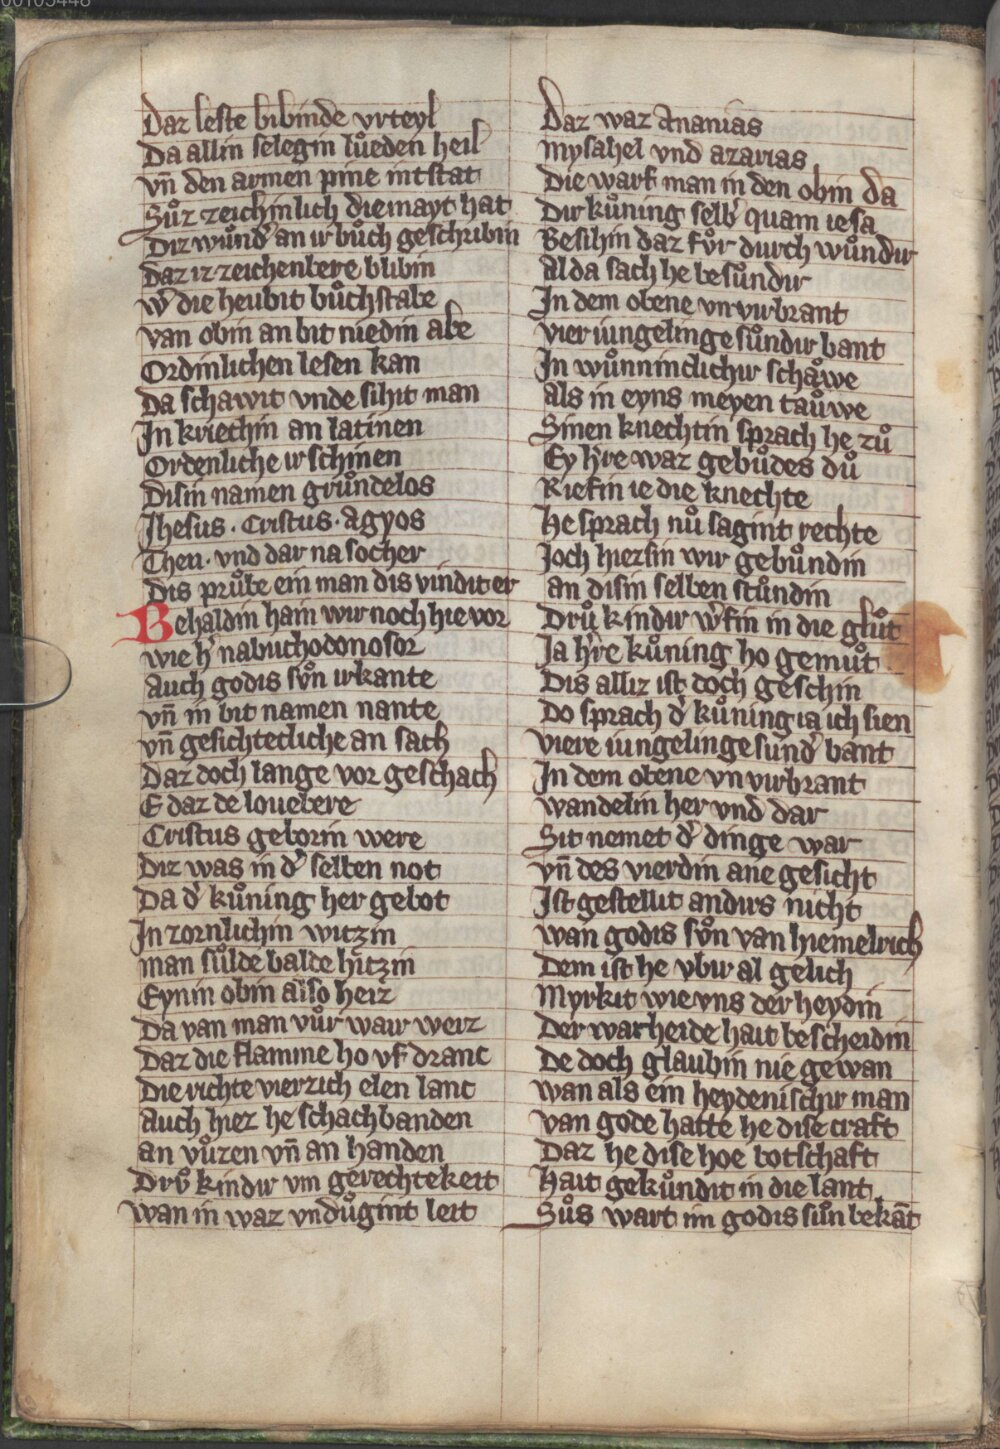 00103448
Daz leste bibinde vrteyl
Da allin selegin lůeden heil
vn̄ den armen pine intstat
Sůz zeichinlich die mayt hat
Diz wůnd' an ir bůch geschribin
Daz iz zeichenbere blibin
w' die heubit bůchstabe
van obin an bit niedin abe
Ordinlichen lesen kan
Da schawit vnde sihit man
In kriechin an latinen
Ordenliche irschinen
Disin namen grůndelos
Jhesus · Cristus · agyos
Theu · vnd dar na socher
Dis průbe ein man dis vindit er
Behaldin hain wir noch hie vor
wie h' nabuchodonosor
Auch godis sůn irkante
vn̄ in bit namen nante
vn̄ gesichtecliche an sach
Daz doch lange vor geschach
E daz de louebere
Cristus geborin were
Diz was in d' selben not
Da d' kůning her gebot
In zornlichin witzin
man sůlde balde hitzin
Eynin obin also heiz
Da van man vůr wair weiz
Daz die flamme ho vf dranc
Die richte vierzich elen lanc
Auch hiez he schachbanden
an vůzen vn̄ an handen
Drů kindir vm gerechtekeit
wan in waz vndůgint leit
Daz waz Ananias
mysahel vnd azarias
Die warf man in den obin da
Dir kůning selb' quam iesa
Besihin daz fůr durch wůndir
Alda sach he besůndir
In dem obene vnvirbrant
vier iungelinge sůndir bant
In wůnninclichir schaůwe
als in eyns meyen taůwe
Sinen knechtin sprach he zů
Ey h're waz gebůdes dů
Riefin ie die knechte
he sprach nů sagint rechte
Joch hiezsin wir gebůndin
an disin selben stůndin
Drů kindir w'fin in die glůt
Ja h're kůning ho gemůt
Dis alliz ist doch geschin
Do sprach d' kůning ia ich sien
viere iungelinge sund' bant
In dem obene vnvirbrant
wandelin her vnd dar
Sit nemet d' dinge war
vn̄ des vierdin ane gesicht
Ist gestellit andirs nicht
wan godis sůn van hiemelrich
Dem ist he vbir al gelich
Myrkit wie vns der heydin
Der warheide hait bescheidin
De doch glaubin nie gewan
wan als ein heydenischir man
van gode hatte he dise craft
Daz he dise hoe botschaft
Hait gekůndit in die lant
Sůs wart im godis sůn bekāt